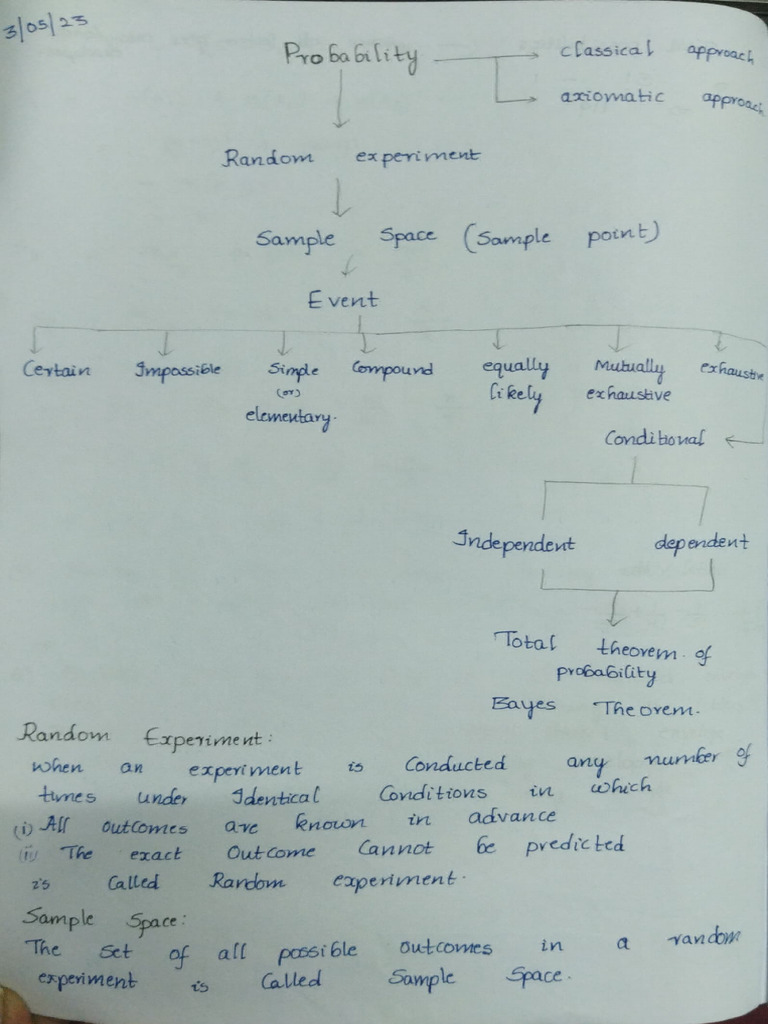 3/05/23
Probability
classical approach
axiomatic approach
Random experiment
Sample Space (Sample point)
Event
Certain Impossible Simple Compound equally Mutually exhaustive
(or) likely exhaustive
elementary.
Conditional
Independent dependent
Total theorem of
probability
Bayes Theorem.
Random Experiment:
When an experiment is Conducted any number of
times under Identical Conditions in which
(i) All outcomes are known in advance
(ii) The exact Outcome Cannot be predicted
is Called Random experiment.
Sample Space:
The set of all possible outcomes in a random
experiment is Called Sample Space.